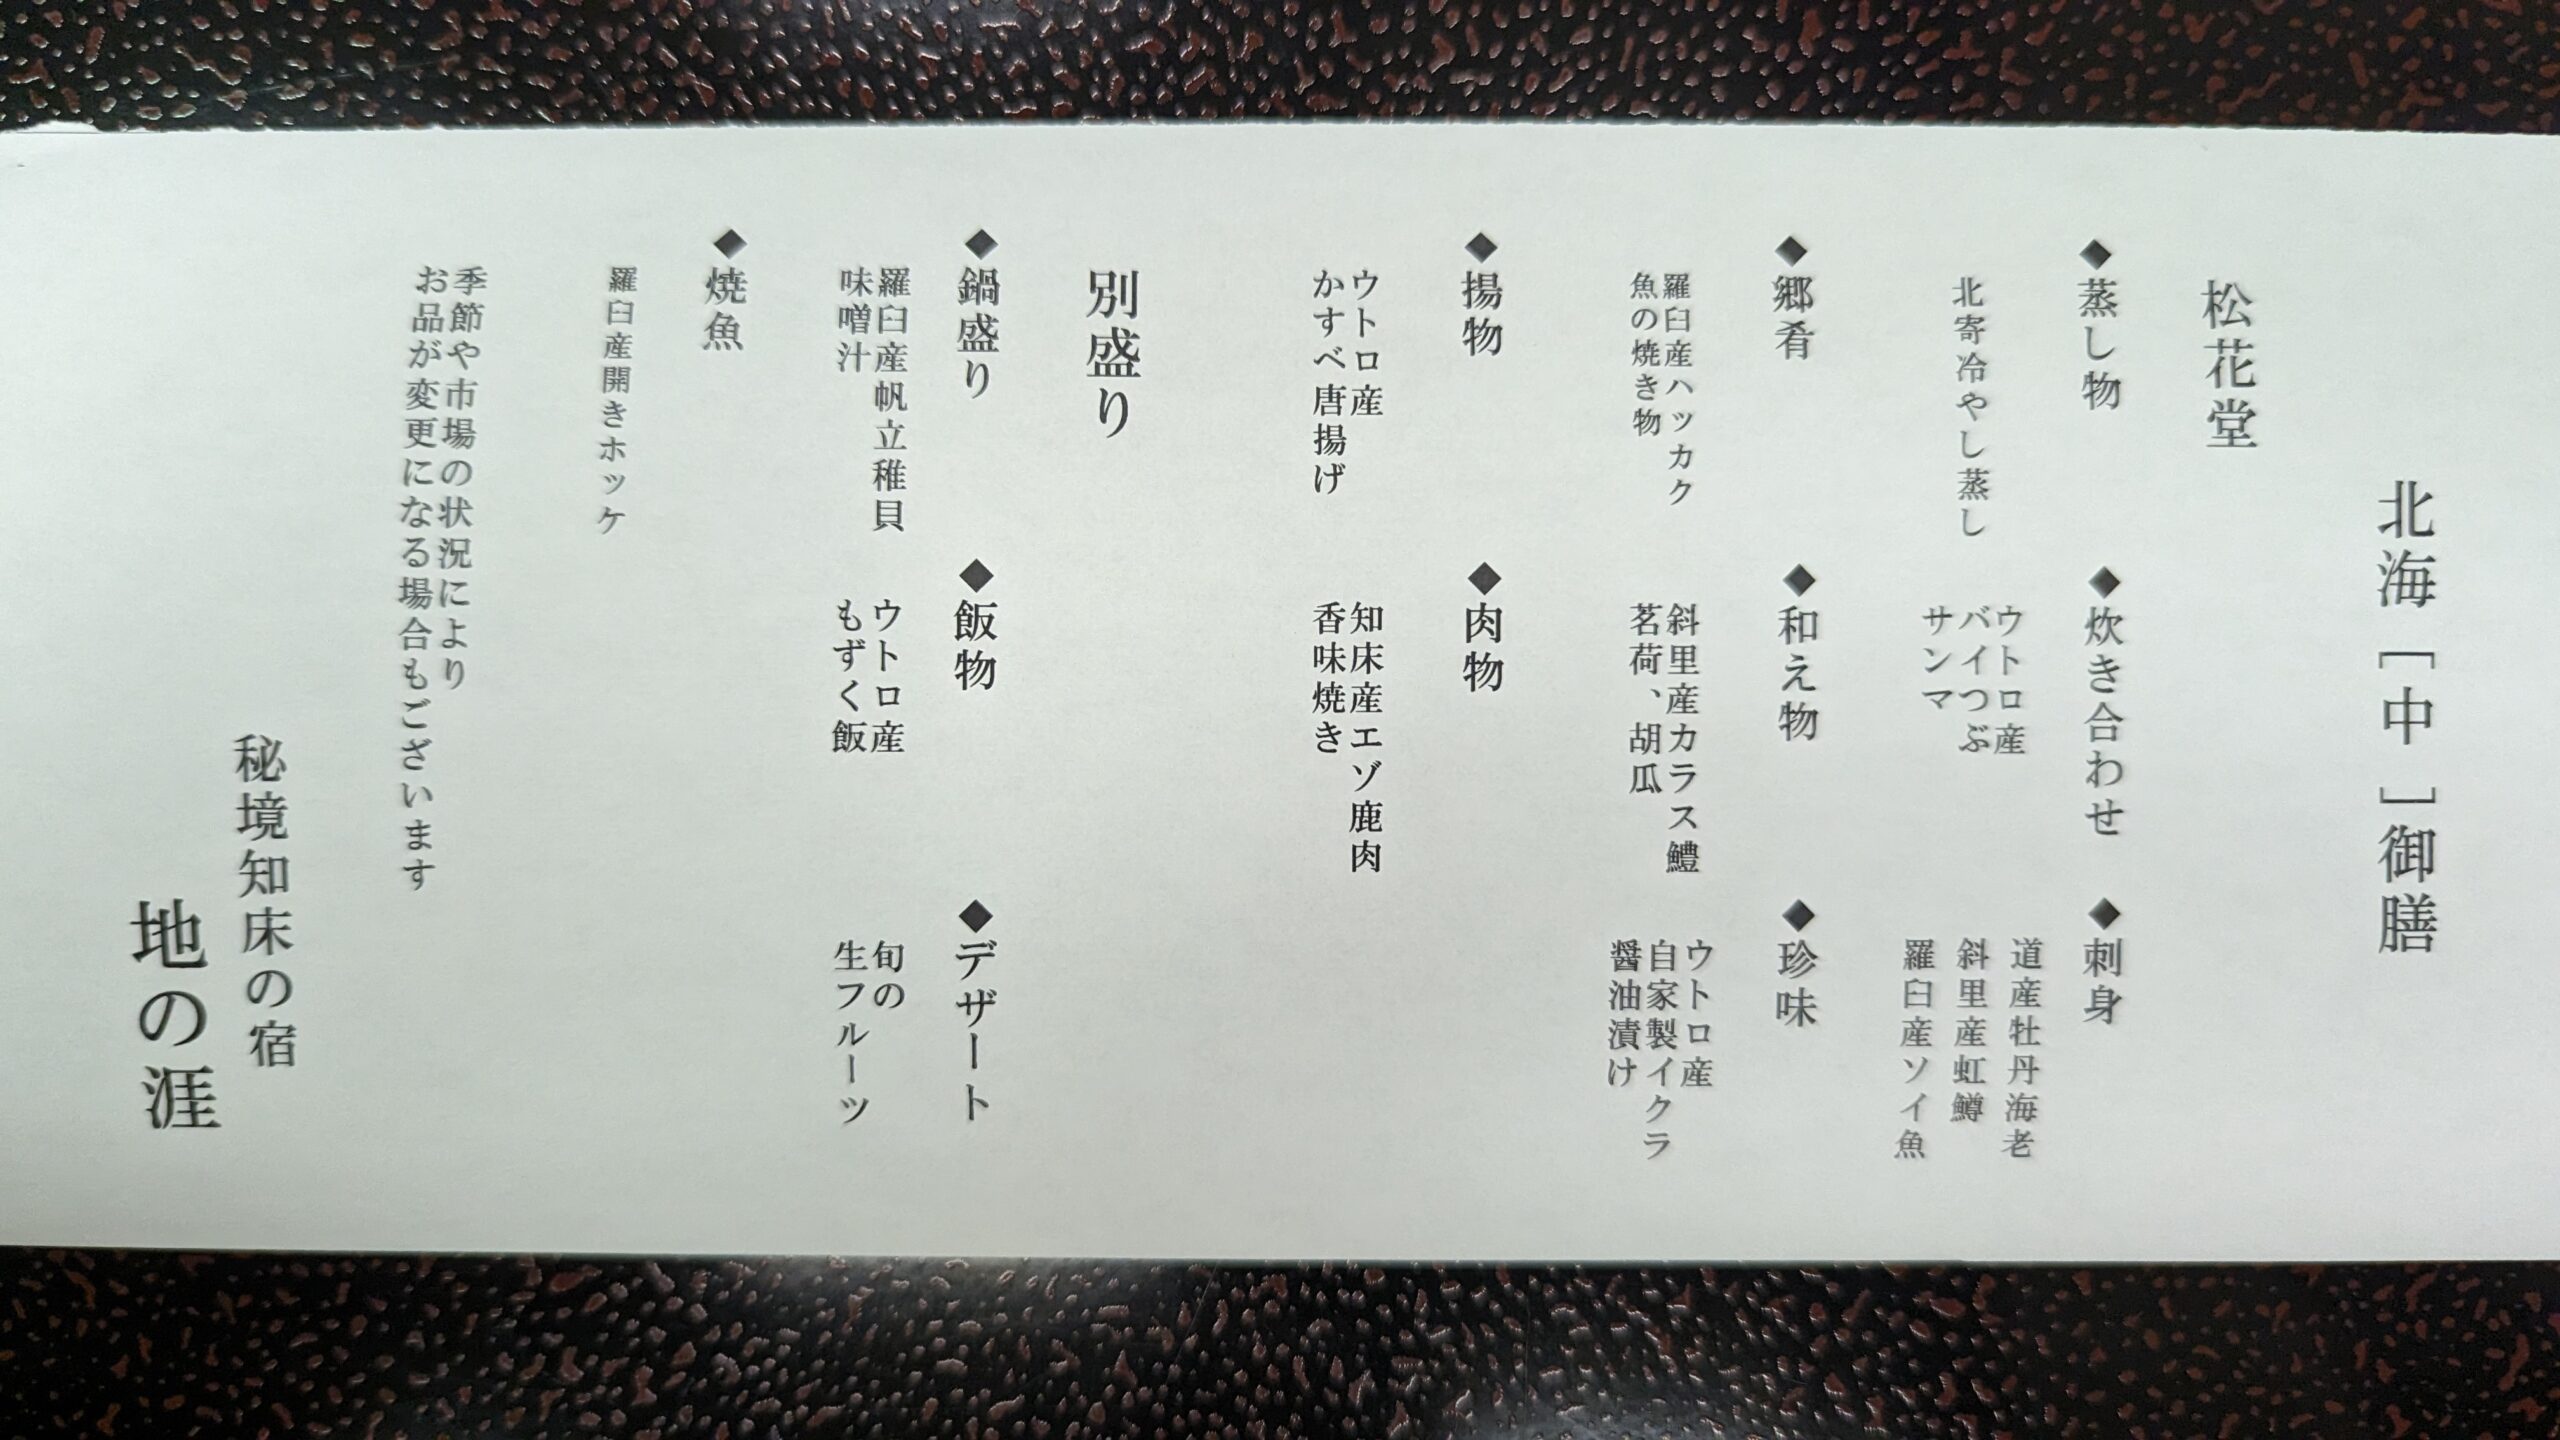 北海［中］御膳
松花堂
◆蒸し物
北寄冷やし蒸し
◆炊き合わせ
ウトロ産
バイつぶ
サンマ
◆刺身
道産牡丹海老
斜里産虹鱒
羅臼産ソイ魚
◆郷肴
羅臼産ハッカク
魚の焼き物
◆和え物
斜里産カラス鱧
茗荷、胡瓜
◆珍味
ウトロ産
自家製イクラ
醤油漬け
◆揚物
ウトロ産
かすべ唐揚げ
◆肉物
知床産エゾ鹿肉
香味焼き
別盛り
◆鍋盛り
羅臼産帆立稚貝
味噌汁
◆飯物
ウトロ産
もずく飯
◆デザート
旬の
生フルーツ
◆焼魚
羅臼産開きホッケ
季節や市場の状況により
お品が変更になる場合もございます
秘境知床の宿
地の涯